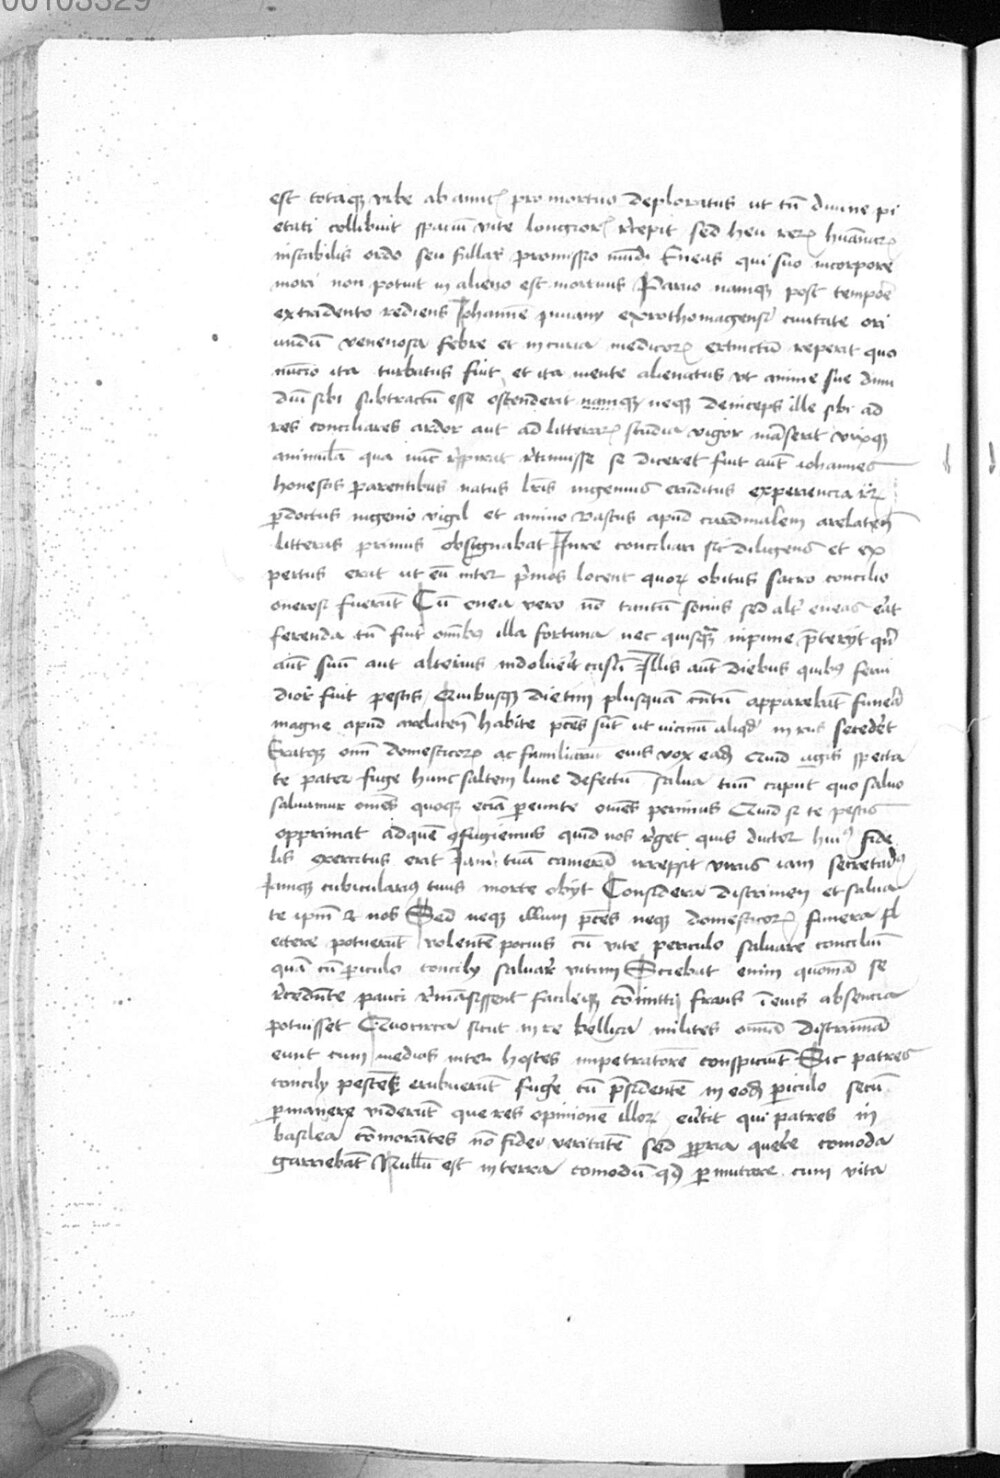 00103329
est totaqʒ vrbe ab amicꝭ pro mortuo deploratus ut tū diuine pi
etati collibuit spaciū vite longiorꝭ recepit sed heu rerꝝ humanarꝝ
instabilis ordo seu fallax promissio mūdi Eneas qui suo in corpore
mori non potuit in alieno est mortuus Paruo namqʒ post tempore
ex tridento rediens Johannē piuany ex rothomagensi ciuitate ori
undū venenosa febre et in curia medicorꝝ extinctū reperit quo
nuncio ita turbatus fuit et ita mente alienatus ut anime sue dimi
diū sibi subtractū esse ostenderit namqʒ neqʒ deinceps ille sibi ad
res conciliares ardor aut ad litterarꝝ studia vigor māserit vixqʒ
animulā qua nūc respirat retinuisse se diceret fuit aut̄ iohannes
honestis parentibus natus lr̄is ingenuus eruditus experiencia rerꝝ
ꝑdoctus ingenio vigil et animo vastus apud cardinalem arelateñ
litteras primus obsignabat Jure conciliari sic diligens et ex
pertus erat ut eū inter p̄mos locent quorꝝ obitus sacro concilio
onerosi fuerūt Cū enea vero nō tantū socius sed alter eneas erat
ferenda tū fuit omībus illa fortuna nec quisquā inpune p̄terijt qui
aut suū aut alterius indoluerit casū Illis aut̄ diebus quibus ferui
dior fuit pestis Quibusqʒ dietim plusquā centū apparebāt funera
magne apud arelateñ habite p̄ces sūt ut vicinū aliqd̄ in rus secederet
Eratqʒ om̄ domesticorꝝ ac familiariū eius vox eadē Quid agis specta
te pater fuge hunc saltem lune defectū salua tuū caput quo saluo
saluamur omēs quoqʒ eciā pereunte omēs perimus Quid si te pestis
opprimat ad quē ꝯfugiemus quid nos reget quis ductor huiꝰ fide
lis exercitus erat Jam tuā camerā irrepsit virus iam secretariꝰ
Jamqʒ cubicularius tuus morte obijt Considera discrimen et salua
te ipm̄ et nos Sed neqʒ illum p̄ces neqʒ domesticorꝝ funera fl
ectere potuerūt volentē pocius cū vite periculo saluare conciliū
quā cū ꝑiculo concilij saluare vitam Sciebat enim quoniā se
recedente pauci remāsissent facileqʒ cōmitti fraus ī eius absencia
potuisset Quocirca sicut in re bellica milites omnia discrimina
eunt cum medios inter hostes inpetratorē conspiciūt Sic patres
concilij pestē erubuerūt fugere cū p̄sidentē in eodē ꝑiculo secū
ꝑmanere viderūt que res opinionē illorꝝ euertit qui patres in
basilea cōmorantes nō fidei veritatē sed ꝓpria querere comoda
garriebāt Nullū est in terra comodū qd̄ ꝑmutare cum vita